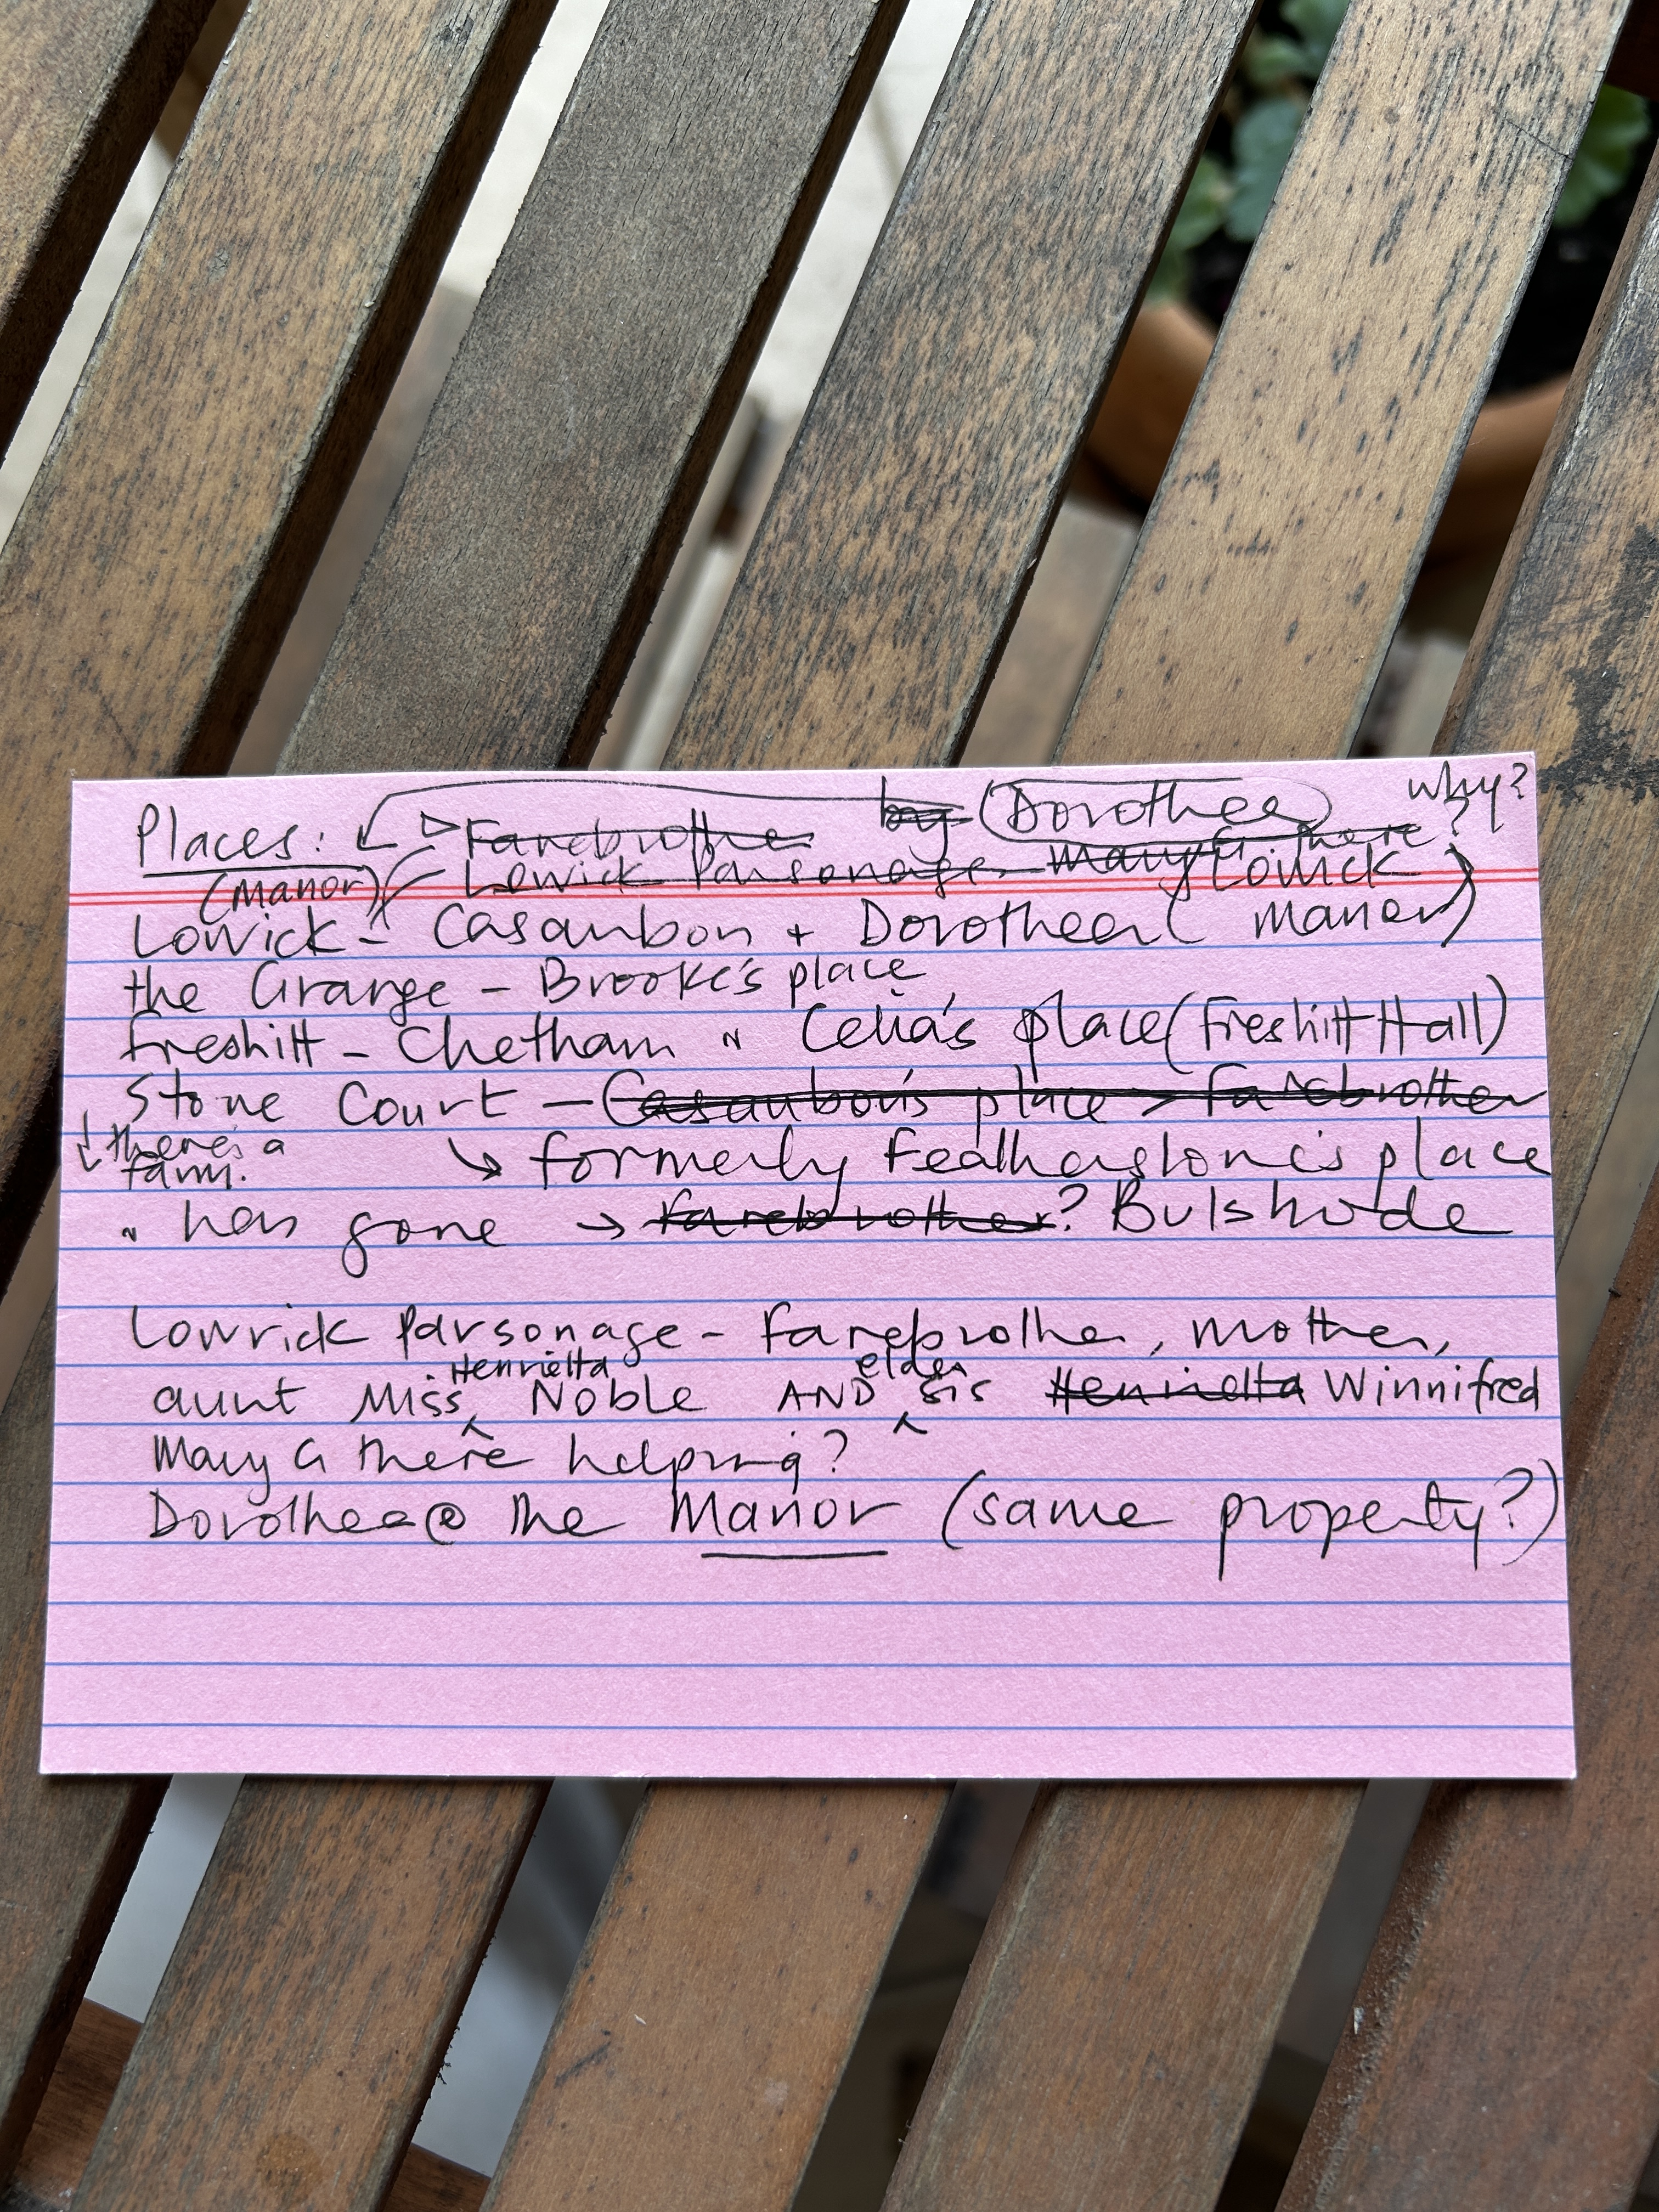 why?
by (Dorothea)
Places: Farebrother
Lowick Parsonage - Mary G. there?
(Manor)
Lowick - Casaubon + Dorothea (Lowick Manor)
the Grange - Brooke's place
Freshitt - Chetham " Celia's place (Freshitt Hall)
Stone Court - Casaubon's place > Farebrother
↓ there's a farm.
↘ formerly Featherstone's place
" has gone → Farebrother? Bulstrode
Lowrick Parsonage - Farebrother, mother,
aunt Miss Henrietta Noble AND elder sis Henrietta Winnifred
Mary G there helping?
Dorothea @ the Manor (same property?)